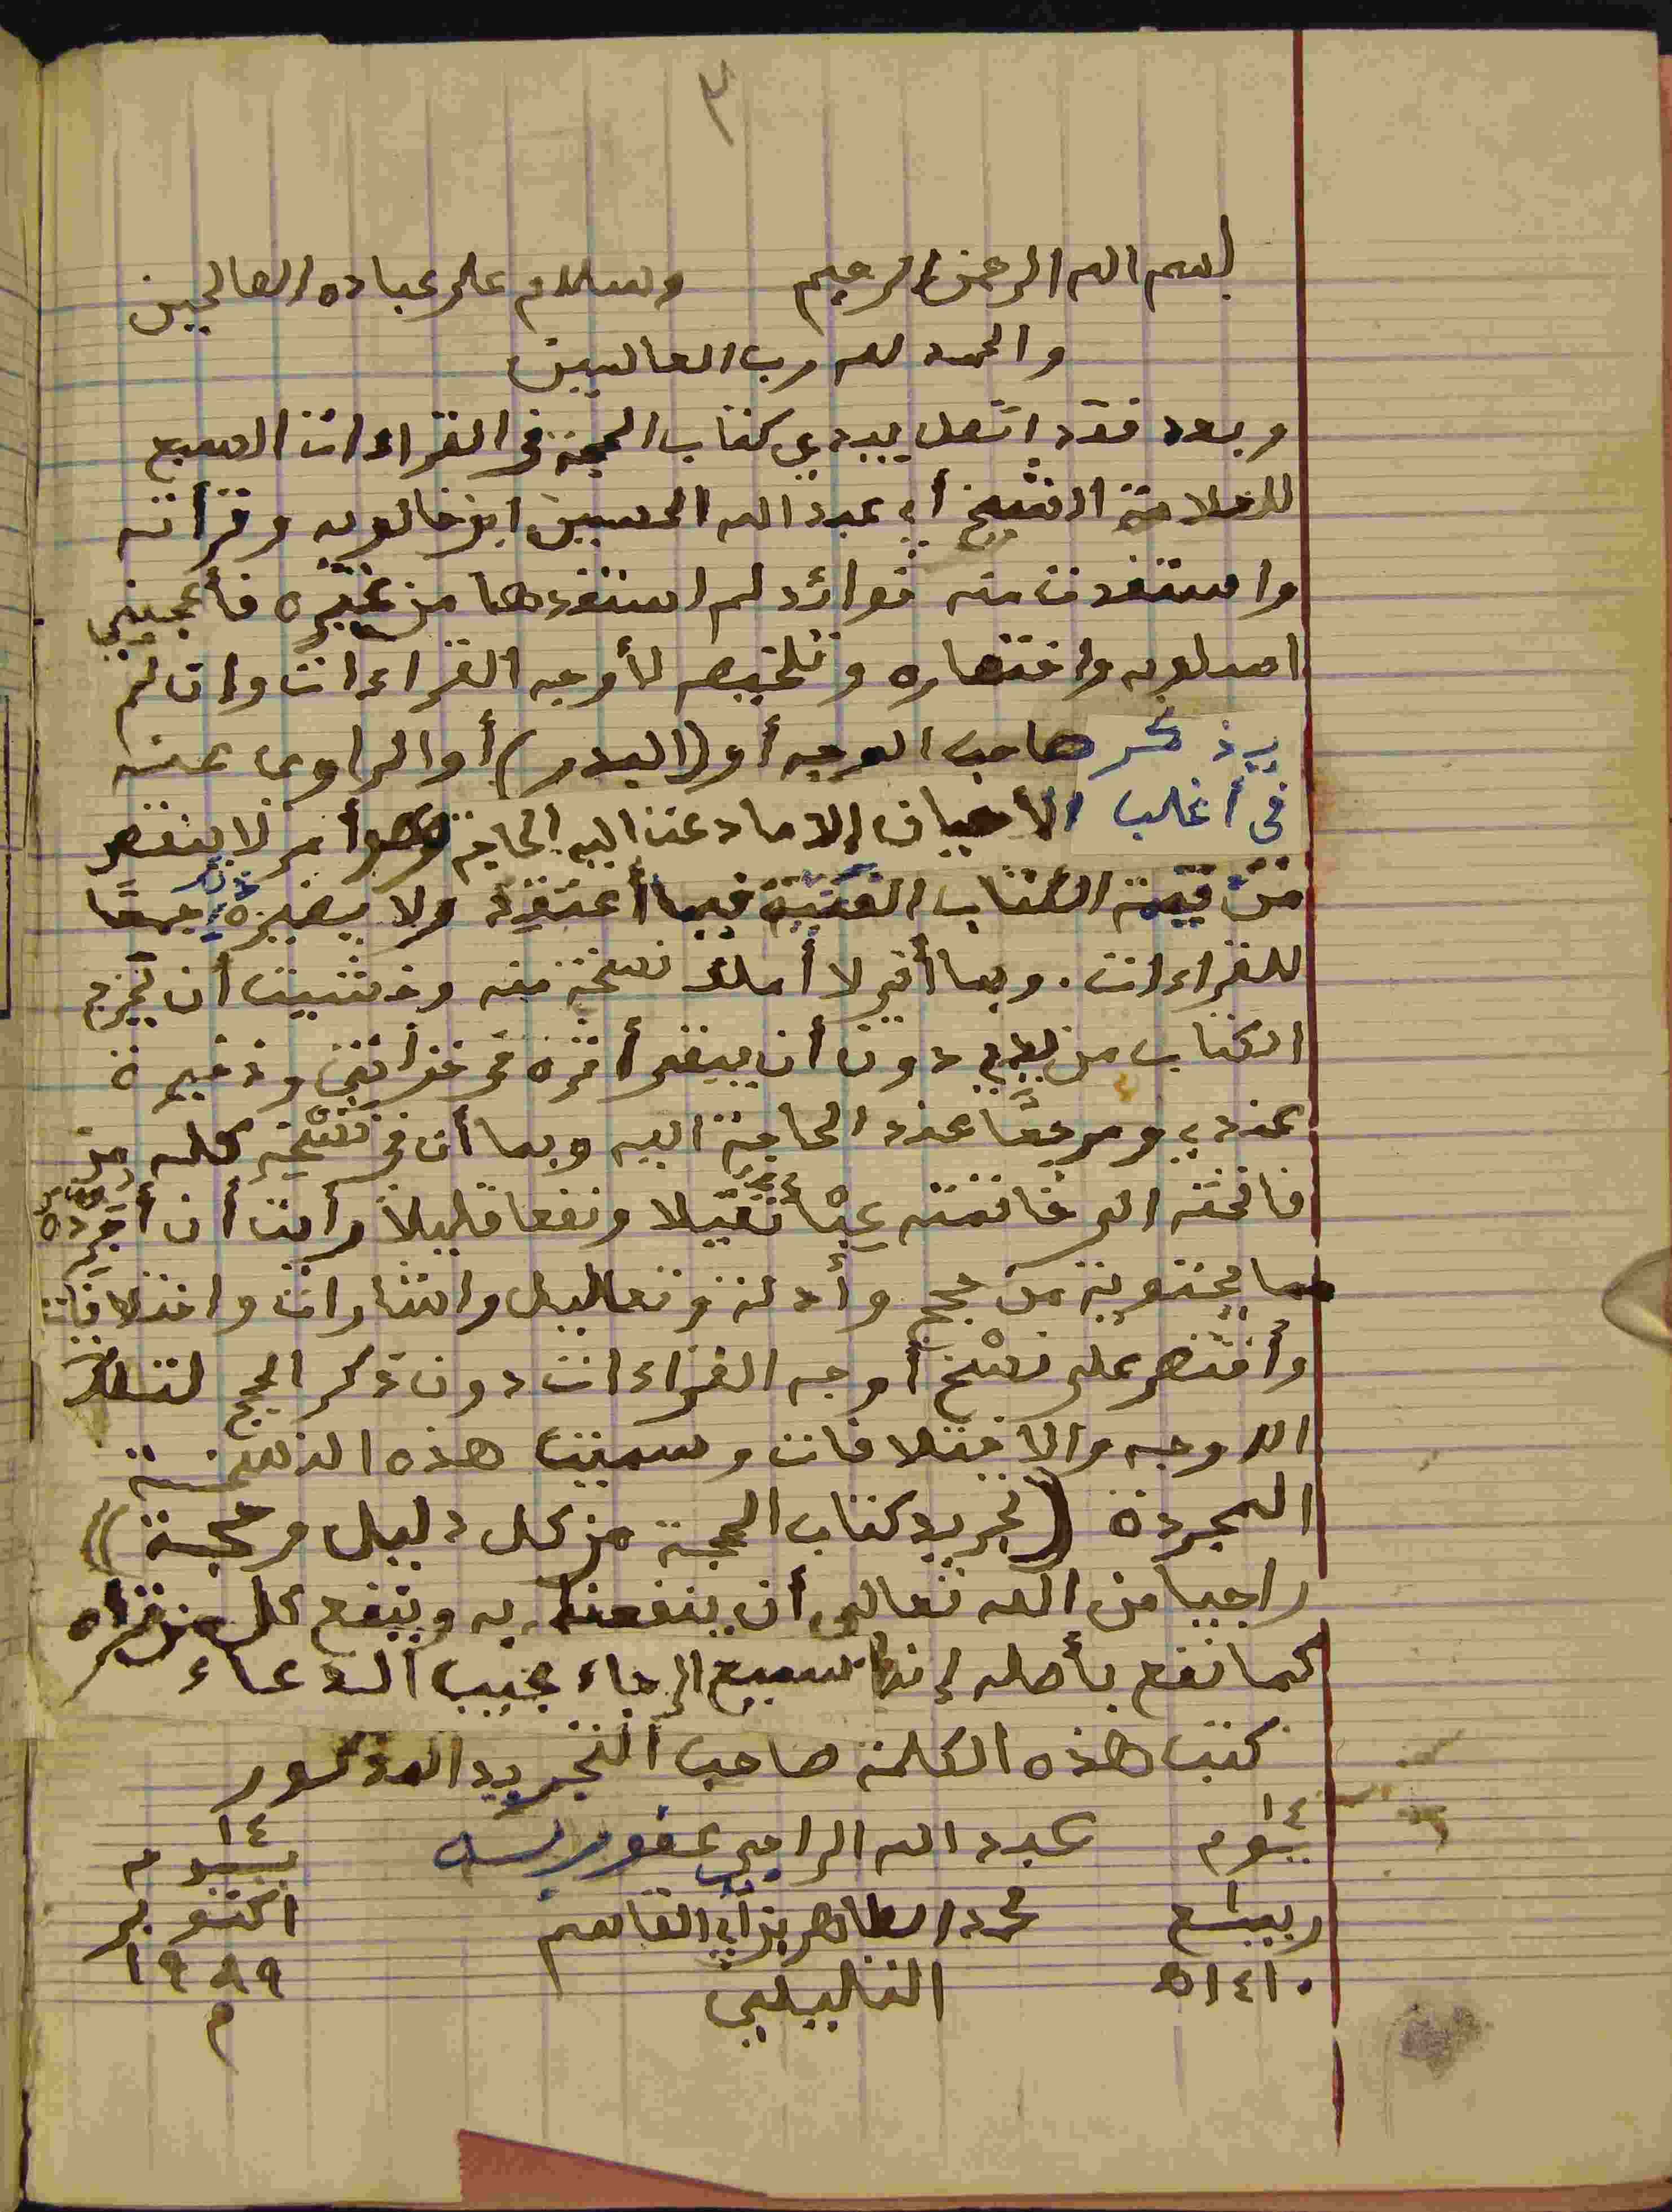 ٣
بسم الله الرحمن الرحيم وسلام على عباده الصالحين
والحمد لله رب العالمين
وبعد فقد اتصل بيدي كتاب الحجة في القراءات السبع
للعلامة الشيخ أبي عبد الله الحسين ابن خالويه وقرأته
واستفدت منه فوائد لم استفدها من غيره فأعجبني
اسلوبه واختصاره وتلخيصه لأوجه القراءات وان لم
يذكر صاحب الوجه أو (البدور) أو الراوي عنه
في أغلب الأحيان إلا ما دعت اليه الحاجة وهو أمر لا ينقص
من قيمة الكتاب الفنية فيما أعتقد ولا يضيره جمعًا
للقراءات. وبما أني لا أملك نسخة منه وخشيت أن يخرج
الكتاب من يدي دون أن يبقى أثره في خزانتي وذخيرة
عندي ومرجعًا عند الحاجة اليه وبما أن في نسخه كله من
فاتحته الى خاتمته عبئا ثقيلا ونفعا قليلاً رأيت أن أجرده
مما يحتويه من حجج وأدلة وتعاليل واشارات واختلافات
وأقتصر على نسخ أوجه القراءات دون ذكر الحجج لتلك
الاوجه والاختلافات وسميت هذه النسخة
المجردة (تجريد كتاب الحجة من كل دليل وحجة))
راجيا من الله تعالى أن ينفعنا به وينفع كل من قرأه
كما نفع بأصله إنه سميع الرجاء مجيب الدعاء
كتب هذه الكلمة صاحب التجريد المذكور
يوم ١٤ عبد الله الراجي عفو ربه يوم ١٤
ربيع ١ محمد الطاهر بن أبي القاسم اكتوبر
١٤١٠ه التليلي ١٩٨٩
م